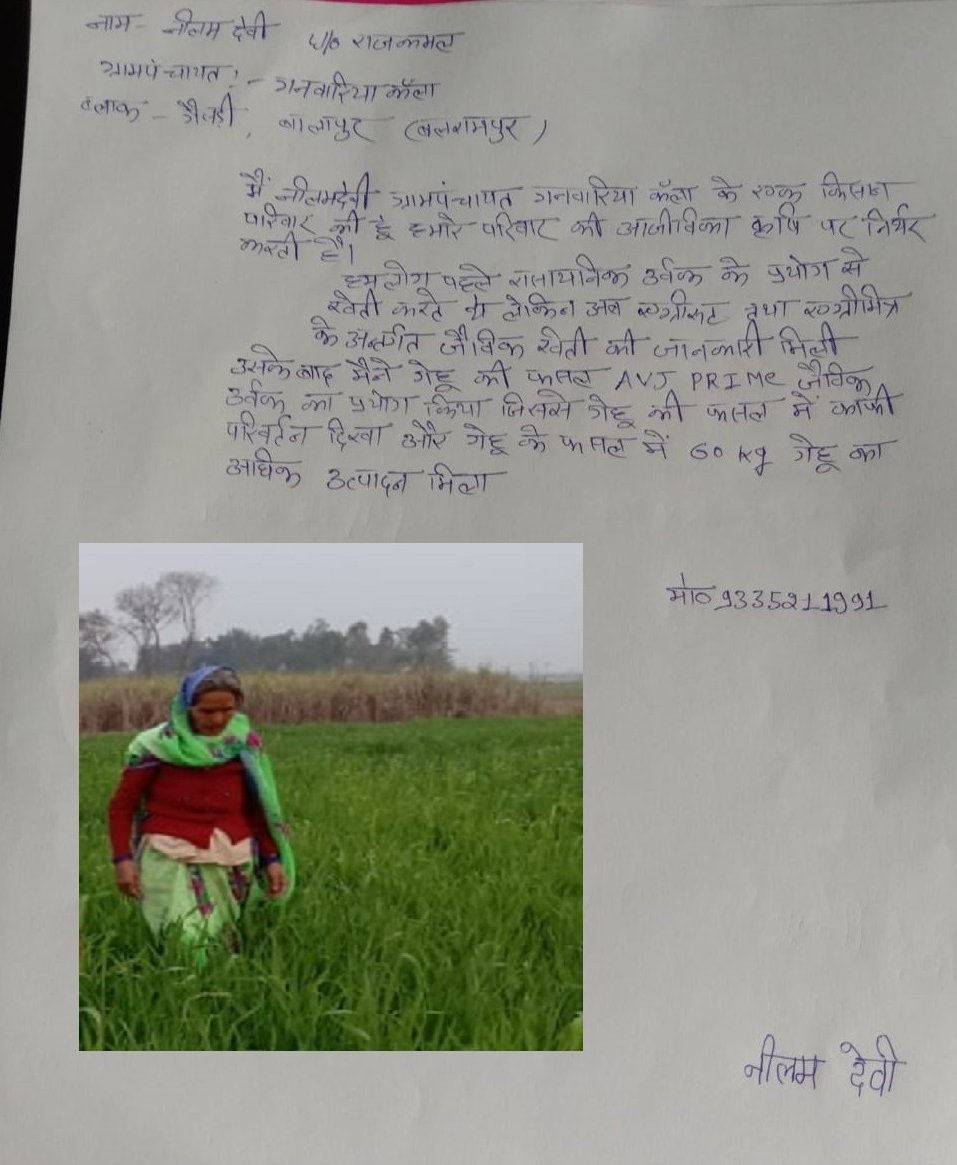 नाम- नीलम देवी w/o राजकमल
ग्रामपंचायत :- गनवारिया कॅला
ब्लाक - गैसड़ी, बालापुर (बलरामपुर)
मैं नीलमदेवी ग्रामपंचायत गनवारिया कॅला के एक किसान
परिवार की हूं हमारे परिवार की आजीविका कृषि पर निर्भर
करती है।
हम लोग पहले रासायनिक उर्वक के प्रयोग से
खेती करते थे लेकिन अब एग्रीरूट तथा एग्रीमित्र
के अर्न्तगत जैविक खेती की जानकारी मिली
उसके बाद मैने गेहू की फसल AVJ PRIMe जैविक
उर्वक का प्रयोग किया जिससे गेहू की फसल में काफी
परिवर्तन दिखा और गेहू के फसल में 60 kg गेहू का
अधिक उत्पादन मिला
मो० 9335211991
नीलम देवी